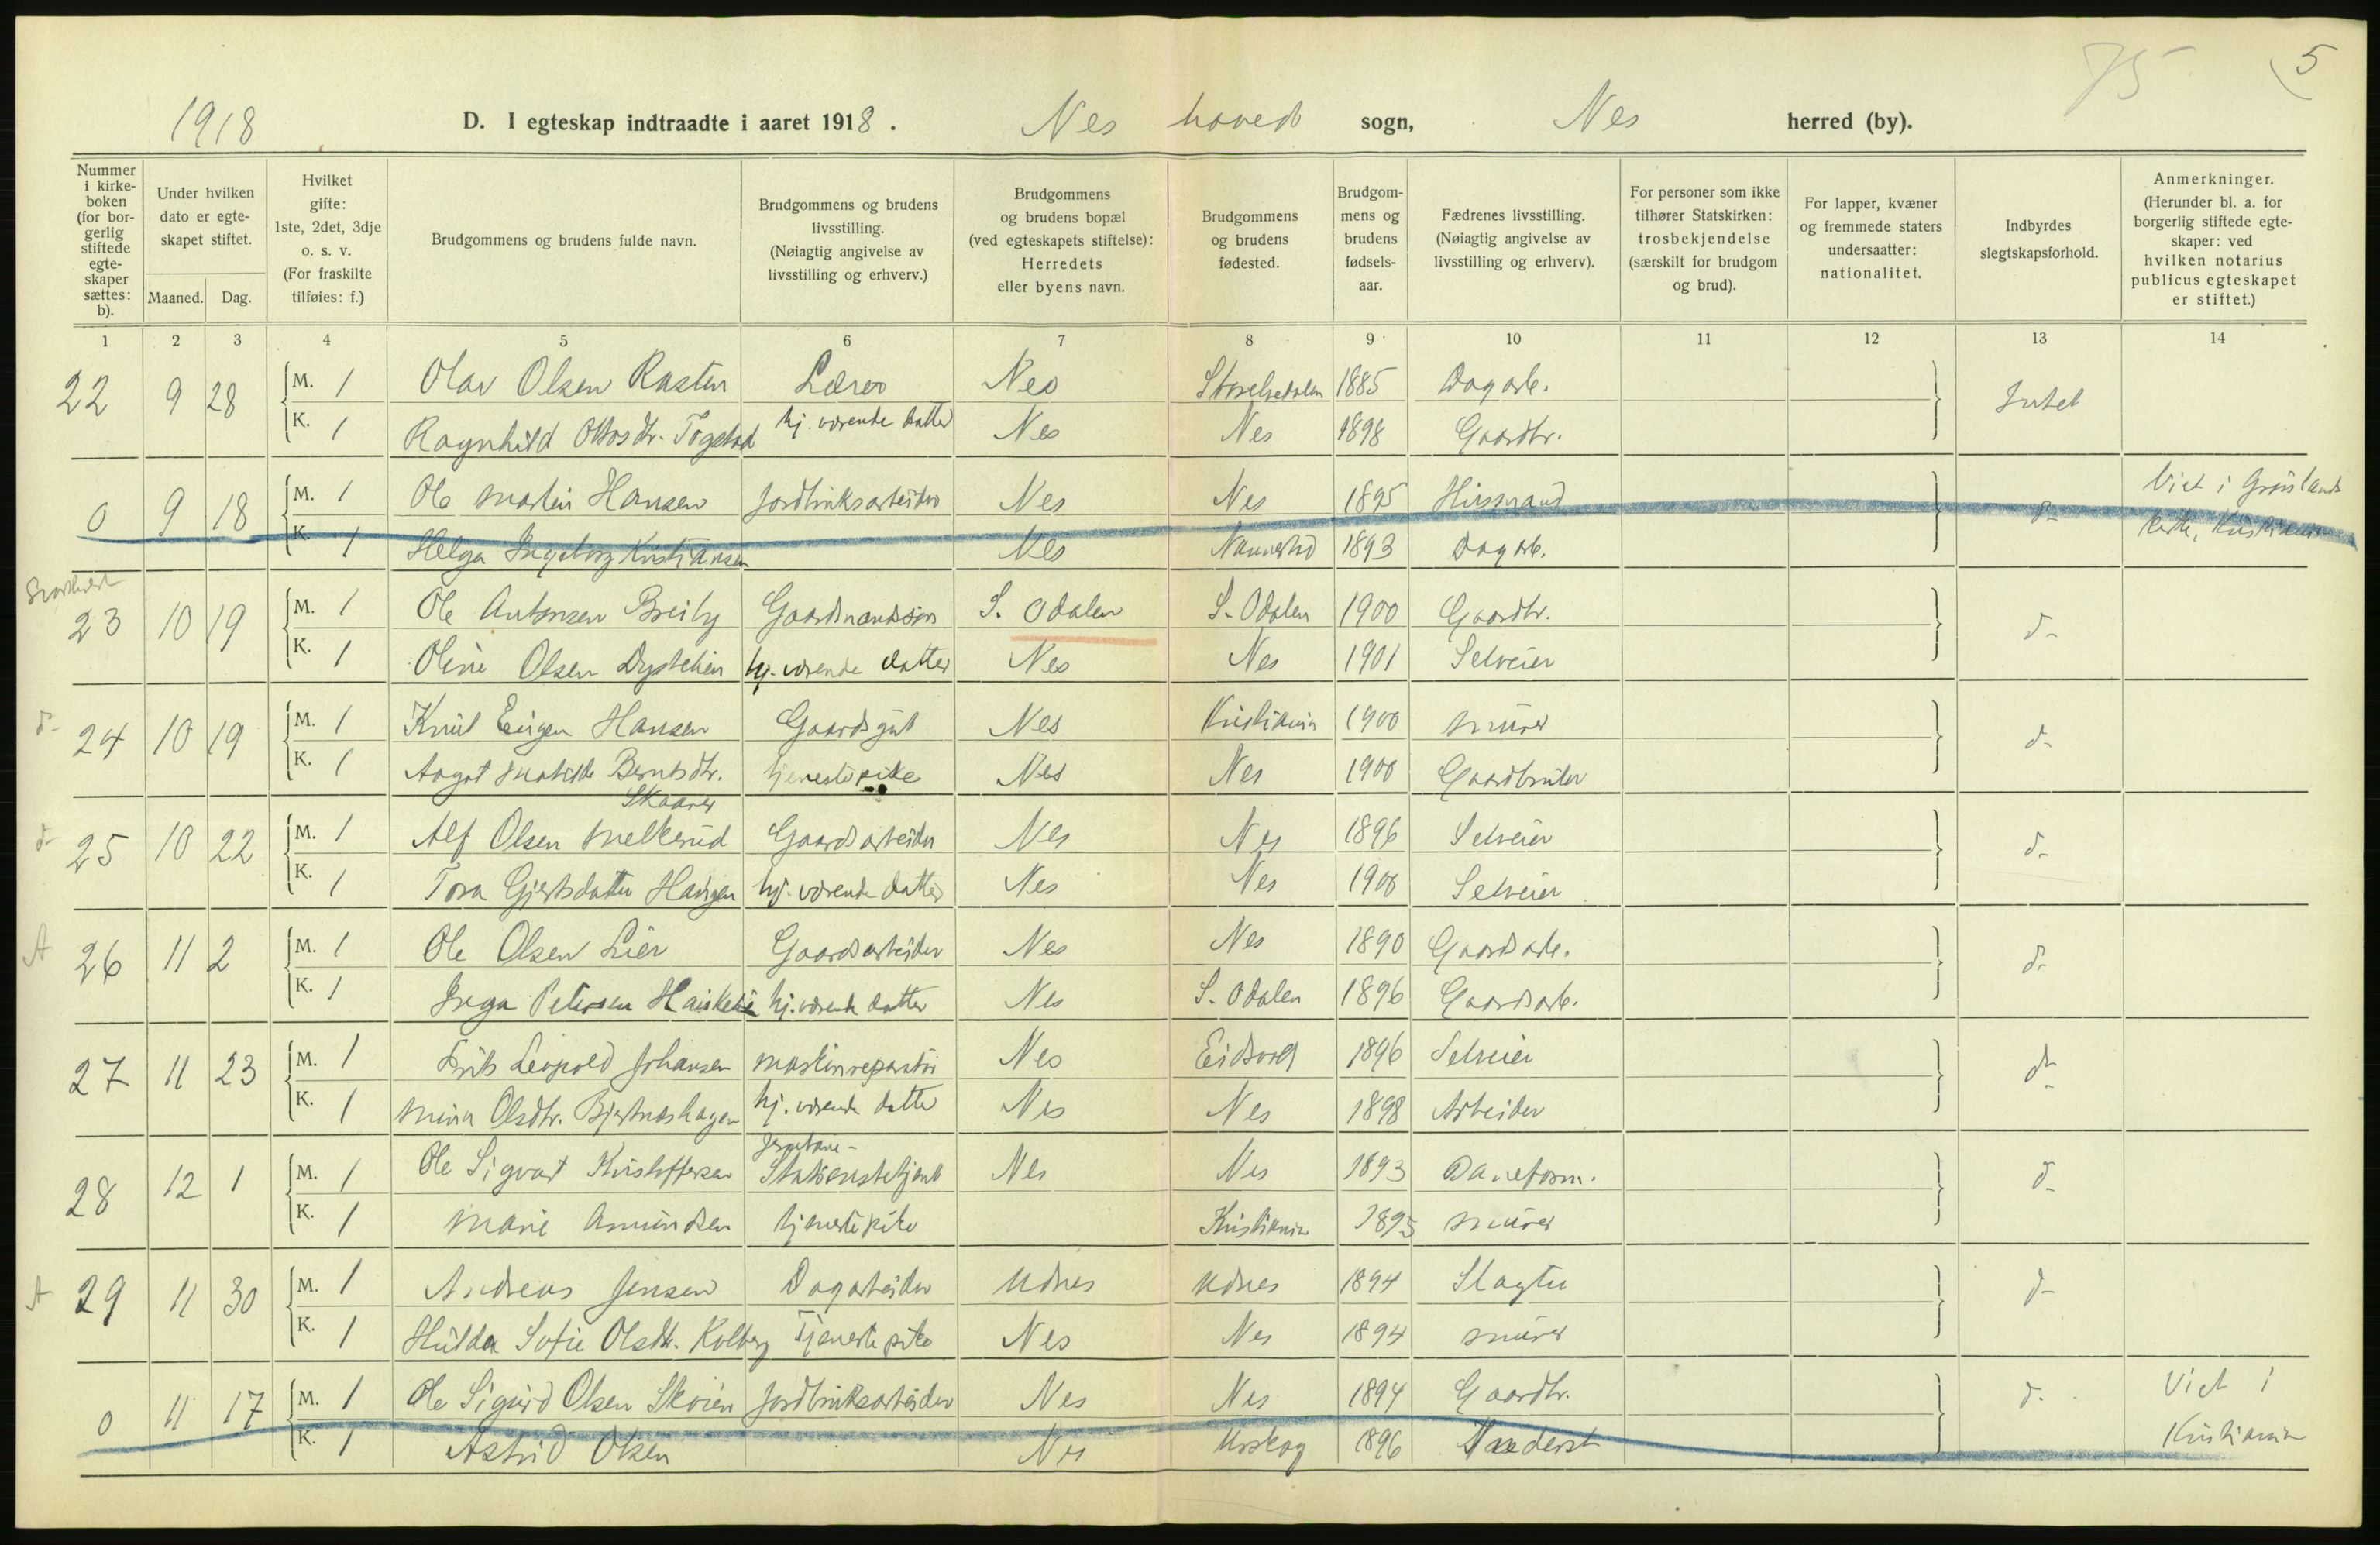 75
5
1918
D. I egteskap indtraadte i aaret 1918. Nes hoved sogn, Nes herred (by).
Nummer i kirke- boken (for bor- gerlig stiftede egte- skaper sættes: b).
Under hvilken dato er egte- skapet stiftet.
Maaned. Dag.
Hvilket gifte: 1ste, 2det, 3dje o. s. v. (For fraskilte tilføies: f.)
Brudgommens og brudens fulde navn.
Brudgommens og brudens livsstilling. (Nøiagtig angivelse av livsstilling og erhverv.)
Brudgommens og brudens bopæl (ved egteskapets stiftelse): Herredets eller byens navn.
Brudgommens og brudens fødested.
Brudgom- mens og brudens fødsels- aar.
Fædrenes livsstilling. (Nøiagtig angivelse av livsstilling og erhverv).
For personer som ikke tilhører Statskirken: trosbekjendelse (særskilt for brudgom og brud).
For lapper, kvæner og fremmede staters undersaatter: nationalitet.
Indbyrdes slegtskapsforhold.
Anmerkninger. (Herunder bl. a. for borgerlig stiftede egte- skaper: ved hvilken notarius publicus egteskapet er stiftet.)
1 2 3 4 5 6 7 8 9 10 11 12 13 14
22 9 28 M. 1 Olav Olsen Rasten Lærer Nes 1885 Dagarb. Intet
K. 1 Ragnhild Ottosdr. Togstad hj. værende datter Nes Nes 1898 Gaardbr.
0 9 18 M. 1 Ole Martin Hansen Jordbruksarbeider Nes Nes 1895 Husmand d- Viet i Grønlands
K. 1 Helga Ingeborg Kristiansen Nes Nannestad 1893 Dagarb. kirke, Kristiania
23 10 19 M. 1 Ole Antonsen Breiby Gaardmandssøn S. Odalen S. Odalen 1900 Gaardbr. d-
K. 1 Oline Olsen Dystebien hj. værende datter Nes Nes 1901 Selveier
d- 24 10 19 M. 1 Knut Eugen Hansen Gaardsgut Nes Kristiania 1900 Murer d-
K. 1 Aagot Mathilde Berntsdr. Tjenestepike Nes Nes 1900 Gaardbruker
Skaarer
d- 25 10 22 M. 1 Alf Olsen Melkerud Gaardsarbeider Nes Nes 1896 Selveier d-
K. 1 Tora Gjertsdatter Haugen hj. værende datter Nes Nes 1900 Selveier
A 26 11 2 M. 1 Ole Olsen Lier Gaardsarbeider Nes Nes 1890 Gaardsarb. d-
K. 1 Inga Petersen hj. værende datter Nes S. Odalen 1896 Gaardsarb.
27 11 23 M. 1 Frits Leopold Johansen Maskinreparatør Nes Eidsvold 1896 Selveier d-
K. 1 Mina Olsdtr. Bjertnæshagen hj. værende datter Nes Nes 1898 Arbeider
Jernbane-
28 12 1 M. 1 Ole Sigvart Kristoffersen Stationsbetjent Nes Nes 1893 Baneform. d-
K. 1 Marie Amundsen Tjenestepike Kristiania 1895 Murer
A 29 11 30 M. 1 Andreas Jensen Dagarbeider Udnes Udnes 1894 Slagter d-
K. 1 Hulda Sofie Olsdtr. Kolberg Tjenestepike Nes Nes 1894 Murer
0 11 17 M. 1 Ole Sigurd Olsen Skøien Jordbruksarbeider Nes Nes 1894 Gaardbr. d- Viet i
K. 1 Astrid Olsen Nes Urskog 1896 Kristiania